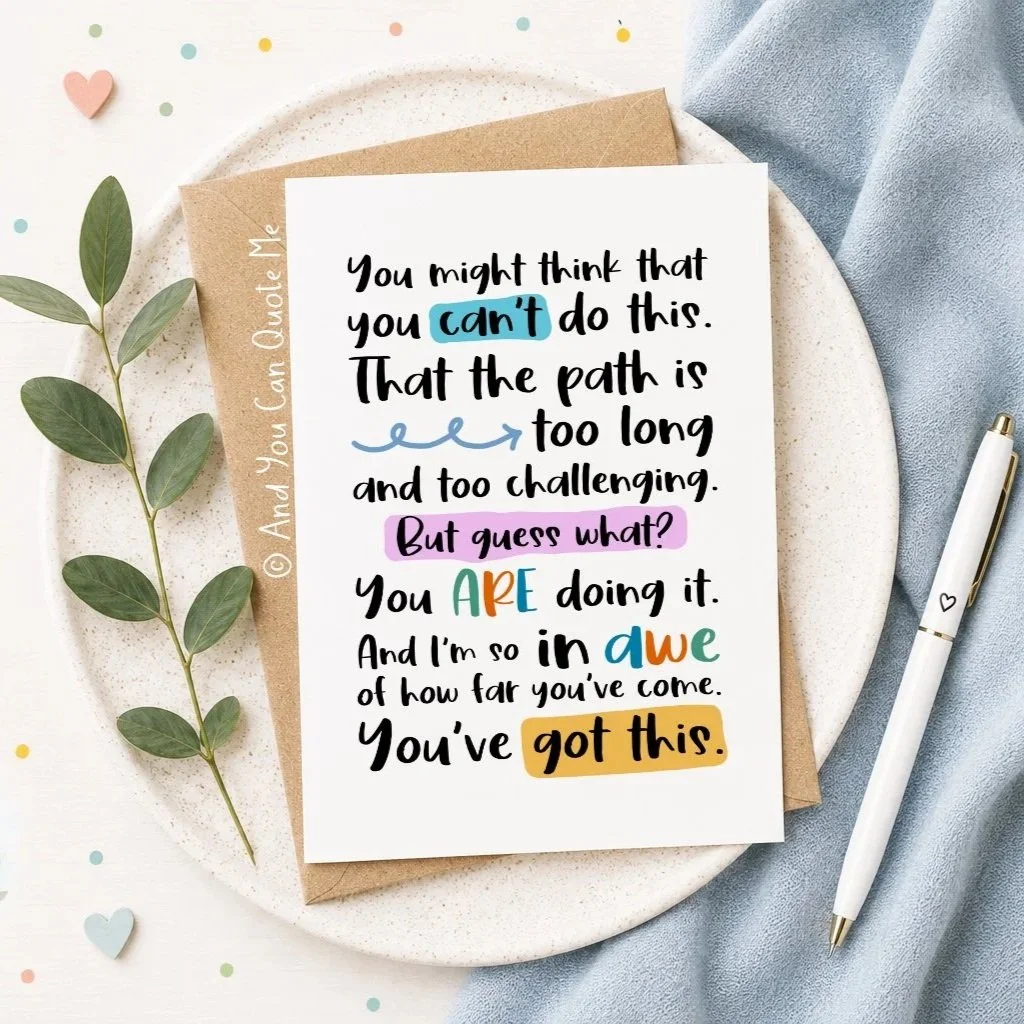 You might think that
you can't do this.
That the path is
too long
and too challenging.
But guess what?
You ARE doing it.
And I'm so in awe
of how far you've come.
You've got this.
© And You Can Quote Me